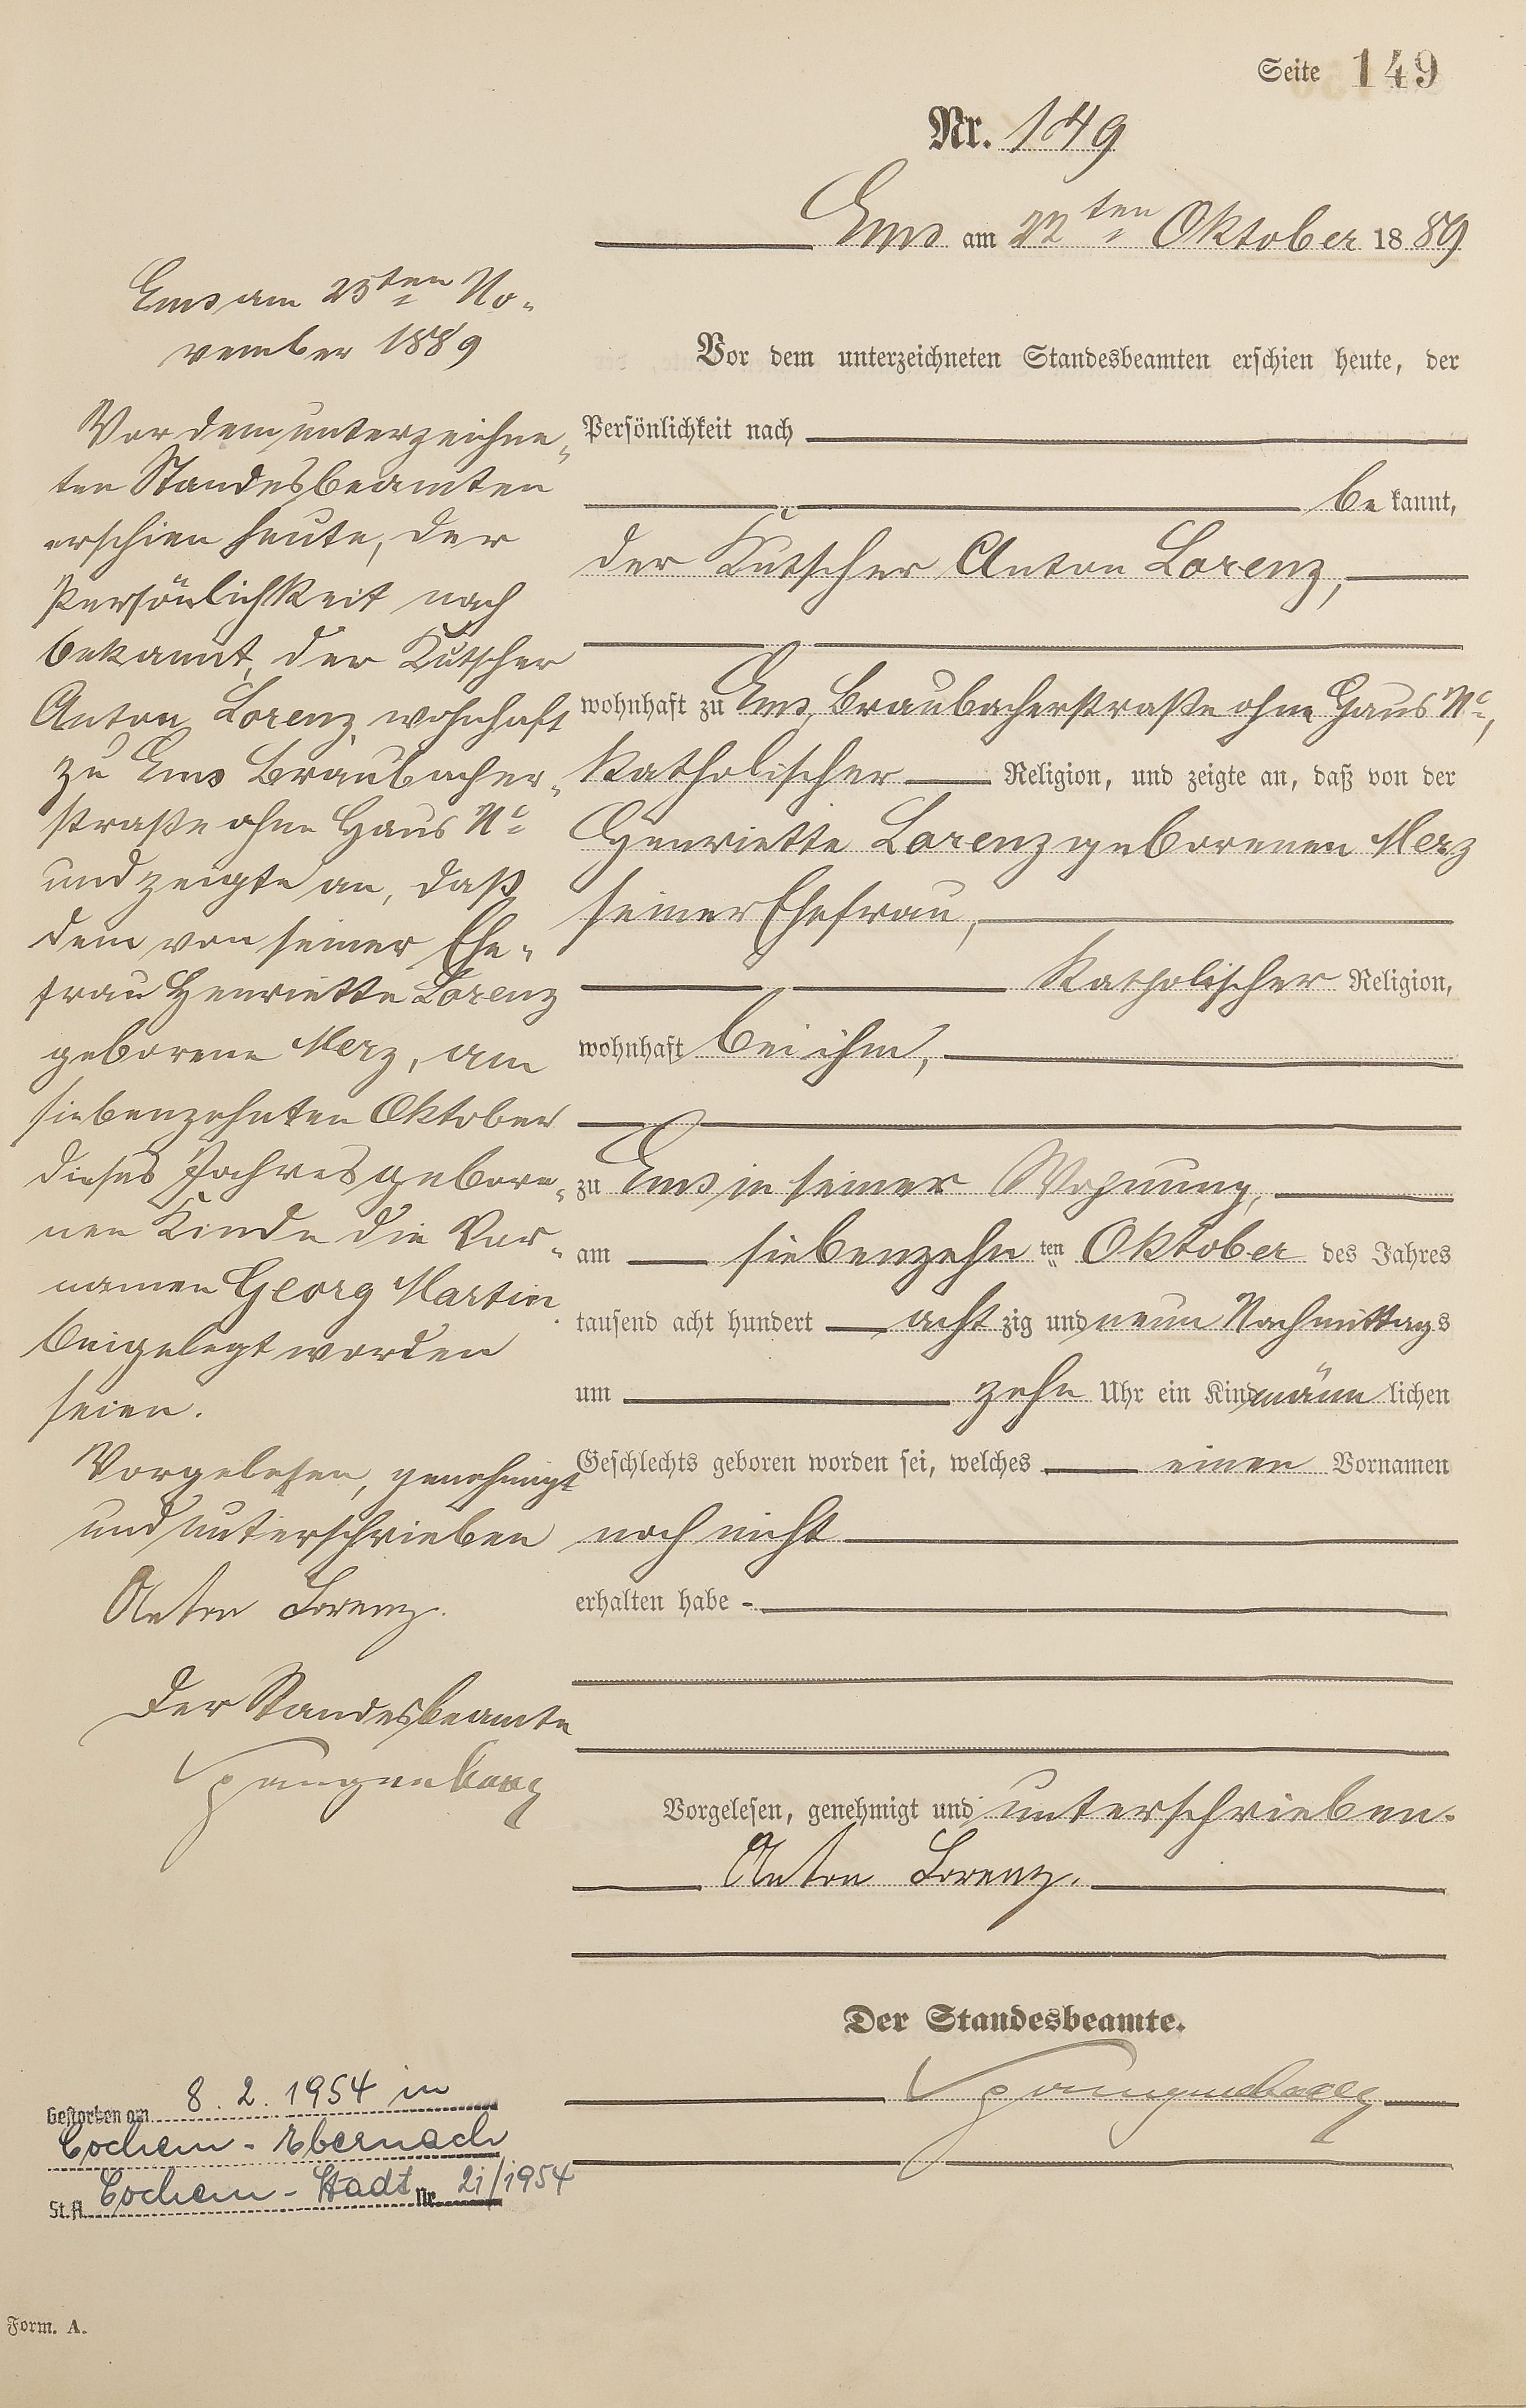 Seite 149
Nr. 149
Ems am 22ten Oktober 1889
Vor dem unterzeichneten Standesbeamten erschien heute, der
Persönlichkeit nach
bekannt,
der Kutscher Anton Lorenz,
wohnhaft zu Ems, Braubacherstraße ohne Haus No,
katholischer Religion, und zeigte an, daß von der
Henriette Lorenz geborenen Merz
seiner Ehefrau,
katholischer Religion,
wohnhaft bei ihm,
zu Ems in seiner Wohnung,
am siebenzehnten Oktober des Jahres
tausend acht hundert achtzig und neun Nachmittags
um zehn Uhr ein Kind männlichen
Geschlechts geboren worden sei, welches einen Vornamen
noch nicht
erhalten habe
Vorgelesen, genehmigt und unterschrieben.
Anton Lorenz.
Der Standesbeamte.
Ems am 23ten No-
vember 1889
Vor dem unterzeichne-
ten Standesbeamten
erschien heute, der
Persönlichkeit nach
bekannt, der Kutscher
Anton Lorenz, wohnhaft
zu Ems Braubacher-
straße ohne Haus No
und zeigte an, daß
dem von seiner Ehe-
frau Henriette Lorenz
geborene Merz, am
siebenzehnten Oktober
dieses Jahres gebore-
nen Kinde die Vor-
namen Georg Martin
beigelegt worden
seien.
Vorgelesen, genehmigt
und unterschrieben
Anton Lorenz.
Der Standesbeamte
Gestorben am 8.2.1954 in
Cochem-Ebernach
St.A. Cochem-Stadt Nr. 21/1954
Form. A.